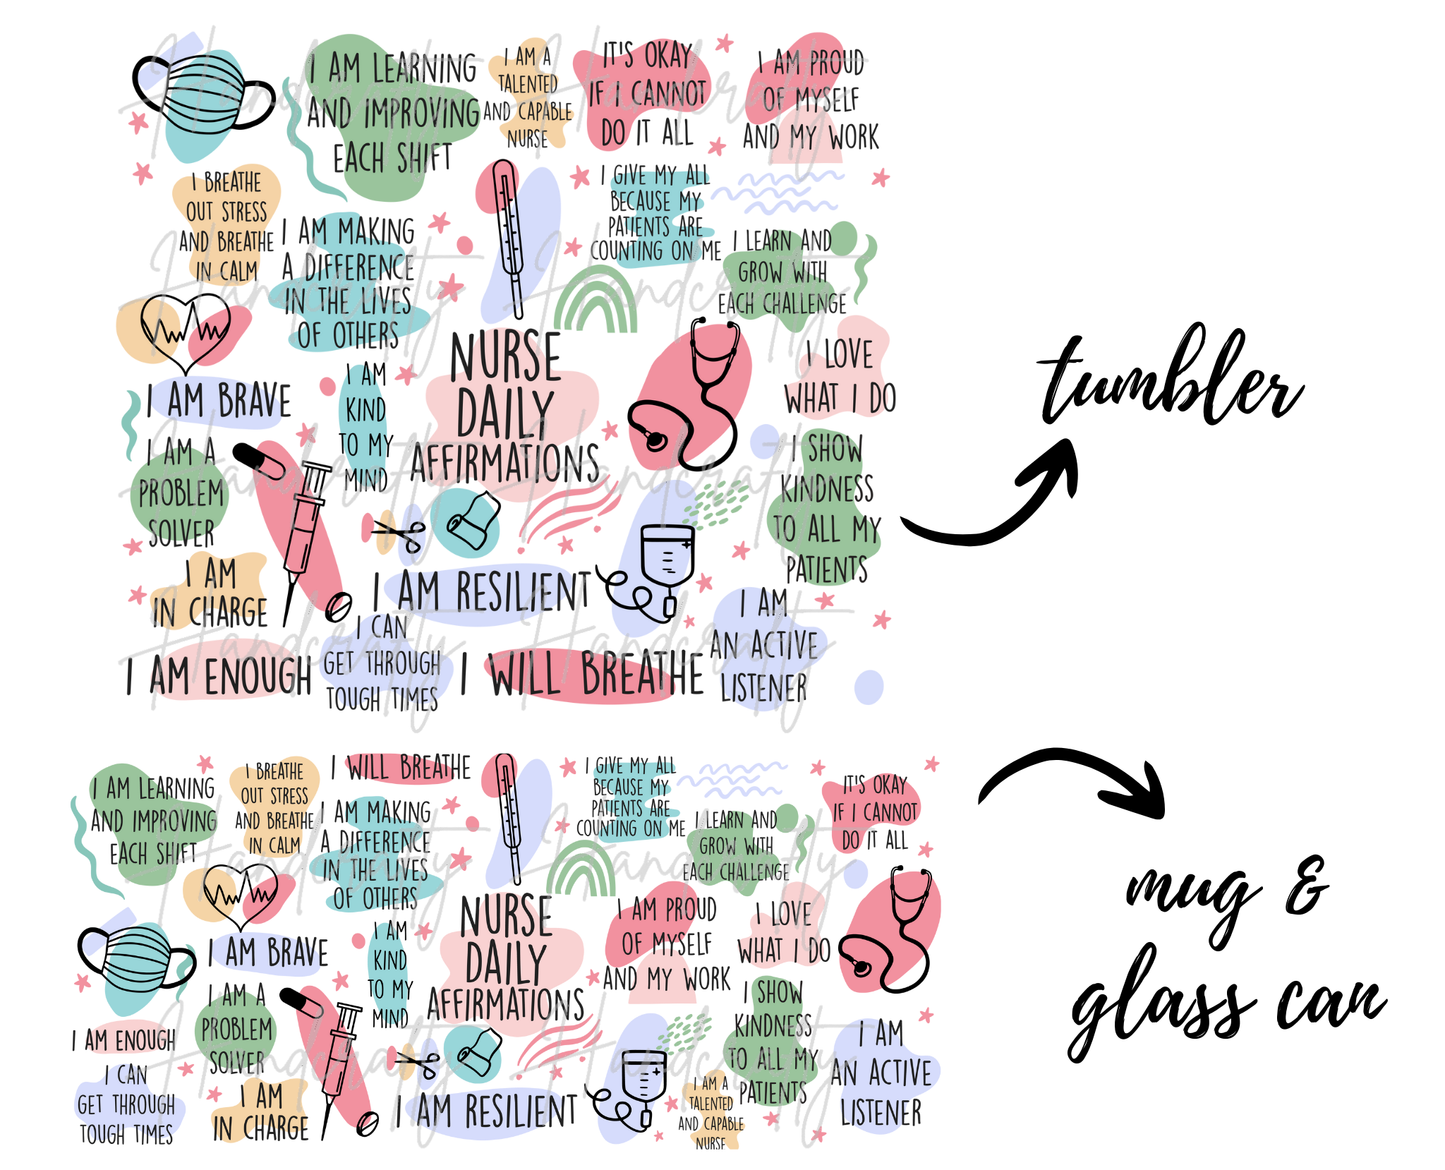 I AM LEARNING
AND IMPROVING
EACH SHIFT
I AM A
TALENTED
AND CAPABLE
NURSE
IT'S OKAY
IF I CANNOT
DO IT ALL
I AM PROUD
OF MYSELF
AND MY WORK
I BREATHE
OUT STRESS
AND BREATHE
IN CALM
I AM MAKING
A DIFFERENCE
IN THE LIVES
OF OTHERS
I GIVE MY ALL
BECAUSE MY
PATIENTS ARE
COUNTING ON ME
I LEARN AND
GROW WITH
EACH CHALLENGE
I AM BRAVE
I AM
KIND
TO MY
MIND
NURSE
DAILY
AFFIRMATIONS
I LOVE
WHAT I DO
I AM A
PROBLEM
SOLVER
I SHOW
KINDNESS
TO ALL MY
PATIENTS
I AM
IN CHARGE
I AM RESILIENT
I AM ENOUGH
I CAN
GET THROUGH
TOUGH TIMES
I WILL BREATHE
I AM
AN ACTIVE
LISTENER
Handcraftly
tumbler
I AM LEARNING
AND IMPROVING
EACH SHIFT
I BREATHE
OUT STRESS
AND BREATHE
IN CALM
I WILL BREATHE
I AM MAKING
A DIFFERENCE
IN THE LIVES
OF OTHERS
I GIVE MY ALL
BECAUSE MY
PATIENTS ARE
COUNTING ON ME
I LEARN AND
GROW WITH
EACH CHALLENGE
IT'S OKAY
IF I CANNOT
DO IT ALL
I AM BRAVE
I AM
KIND
TO MY
MIND
NURSE
DAILY
AFFIRMATIONS
I AM PROUD
OF MYSELF
AND MY WORK
I LOVE
WHAT I DO
I AM ENOUGH
I AM A
PROBLEM
SOLVER
I SHOW
KINDNESS
TO ALL MY
PATIENTS
I CAN
GET THROUGH
TOUGH TIMES
I AM
IN CHARGE
I AM RESILIENT
I AM A
TALENTED
AND CAPABLE
NURSE
I AM
AN ACTIVE
LISTENER
mug &
glass can